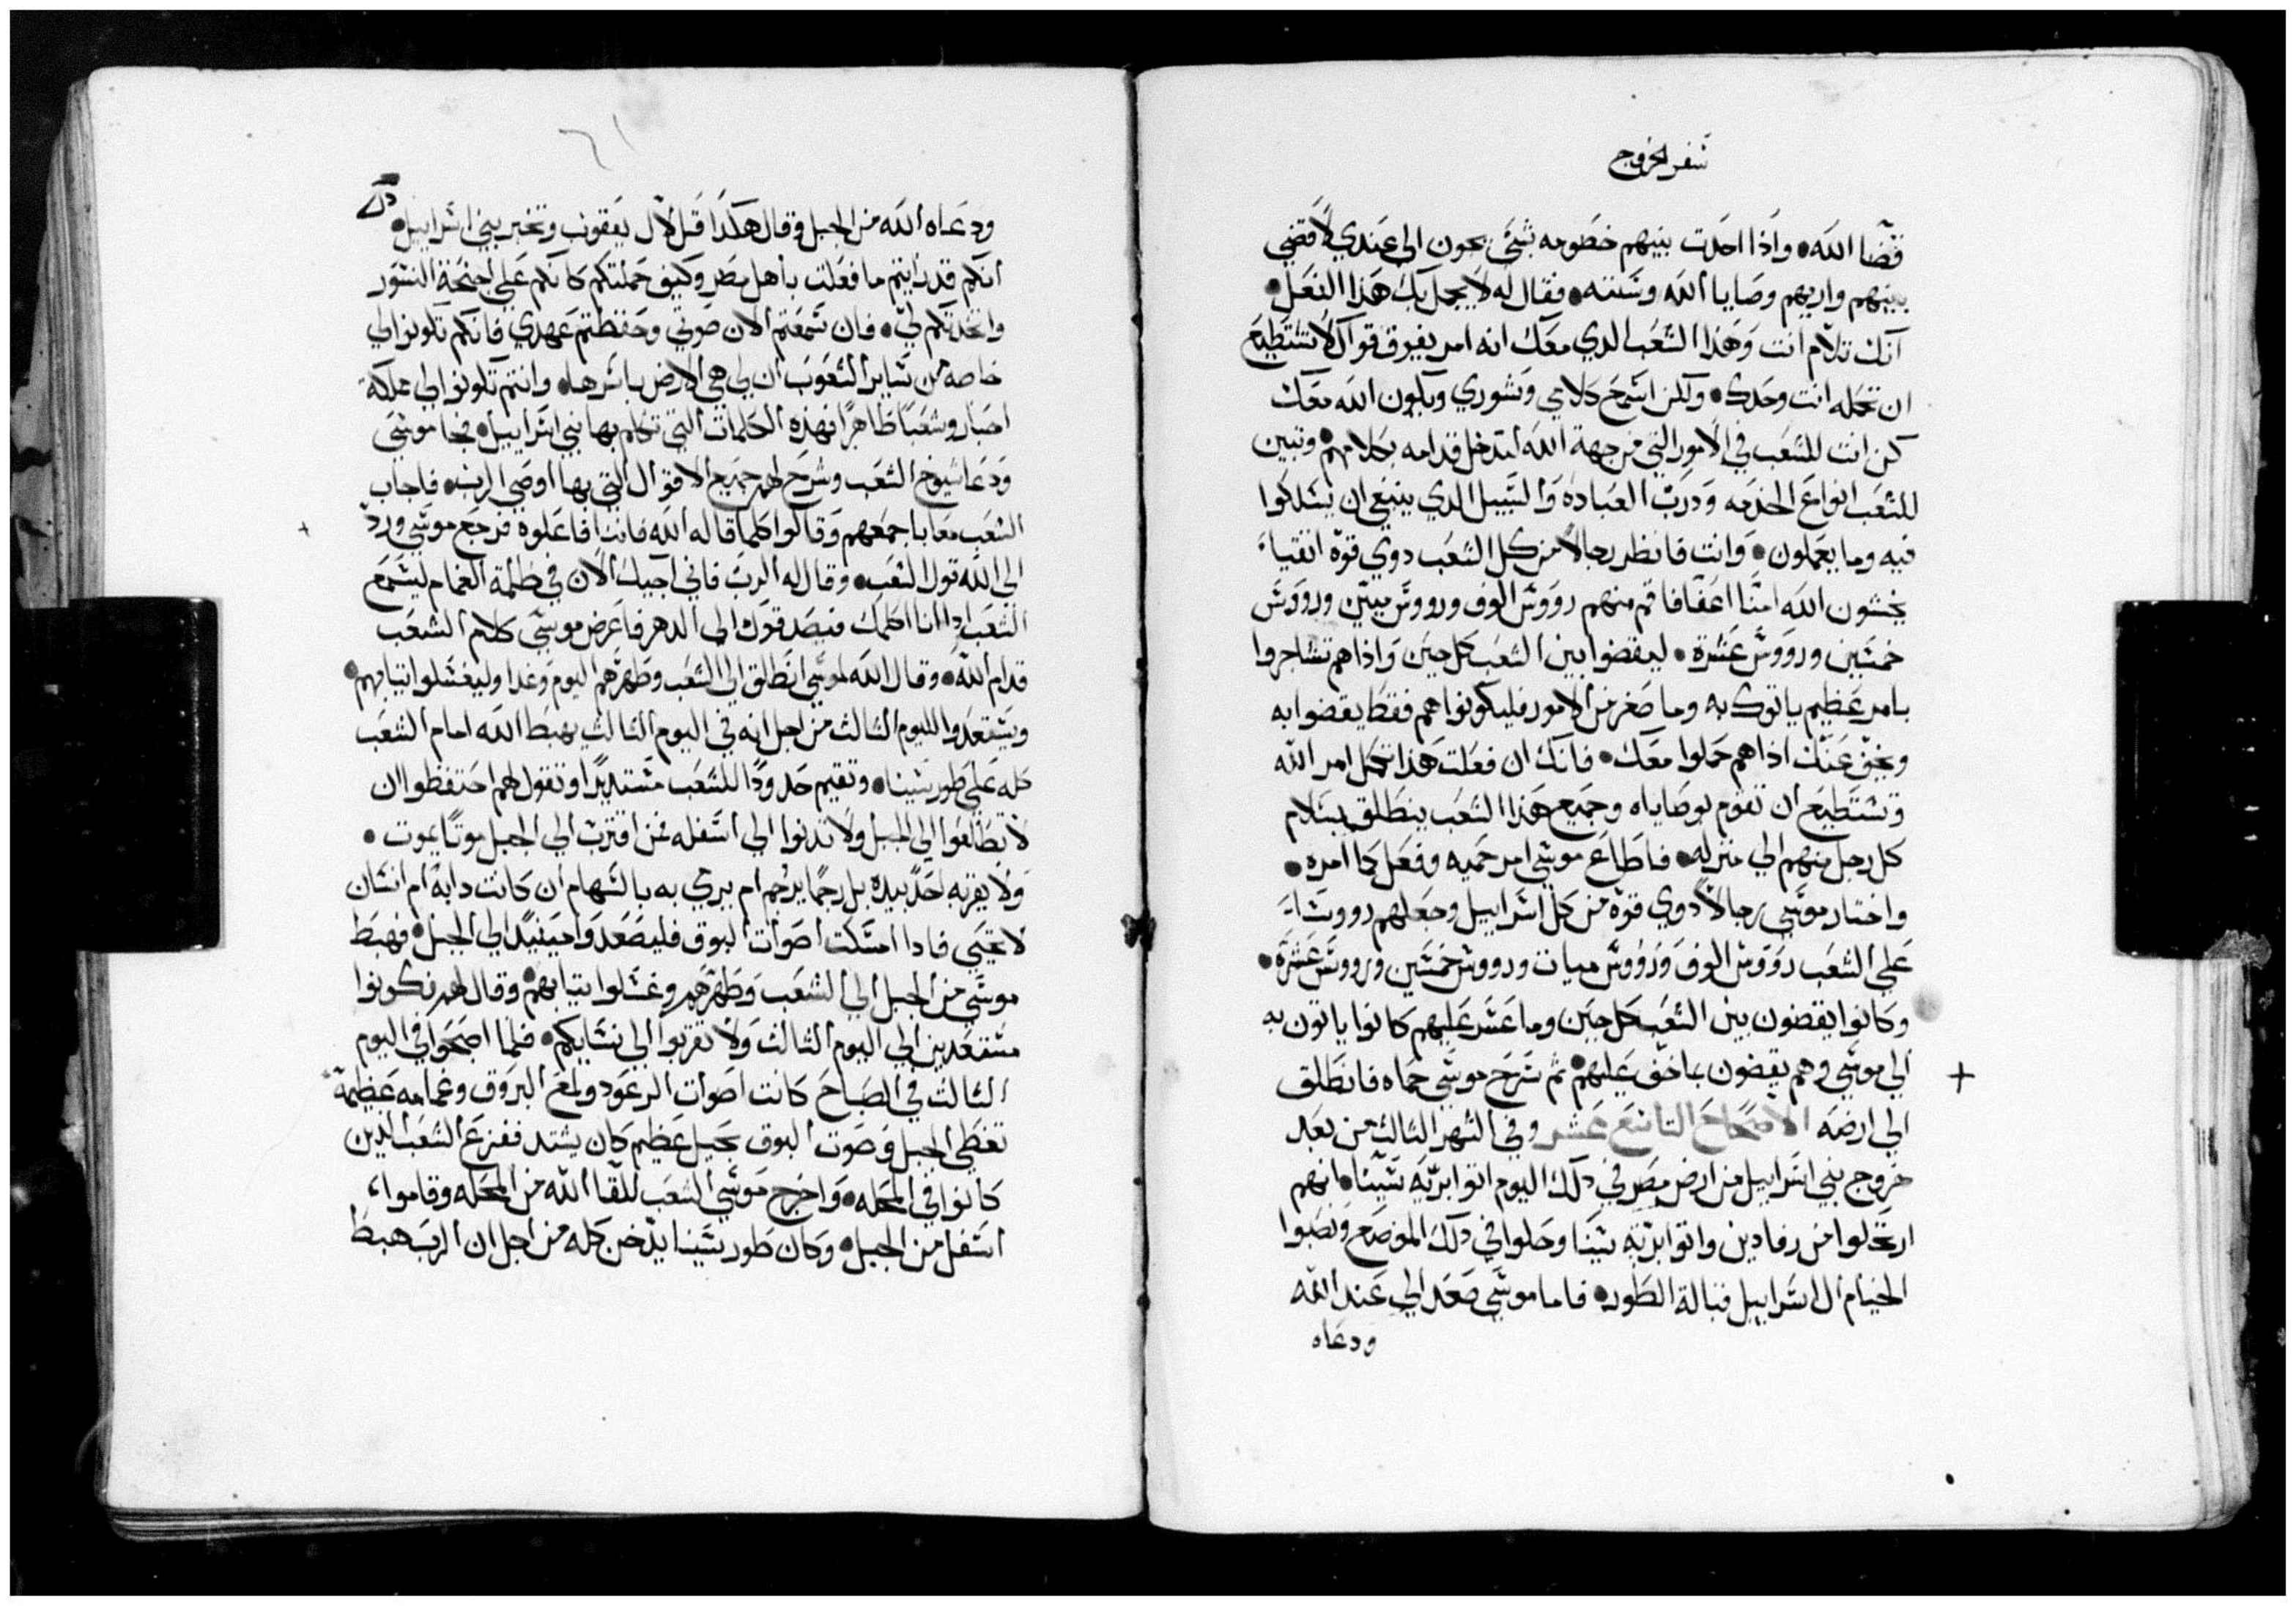 سفر الخروج
قضا الله۰ واذا احدت بينهم خصومه بشئ يجون الى عندي لاقضي
بينهم واريهم وصايا الله وسنته۰ فقال له لا يجمل بك هذا الفعل۰
انك تلام انت وهذا الشعب الدي معك انه امر يفوق قواك لا تستطيع
ان تحمله انت وحدك۰ ولكن اسمع كلامي ومشوري ويكون الله معك
كن انت للشعب في الامور التي من جهة الله لتدخل قدامه بكلامهم۰ وتبين
للشعب انواع الخدمه ودرب العباده والسبيل الدي ينبغي ان يسلكوا
فيه وما يعملون۰ وانت فانظر رجالاً من كل الشعب دوي قوة اتقياء
يخشون الله امنّا اعفّا فاقم منهم رووس الوف ورووس ميين ورووس
خمسين ورووس عشرة۰ ليقضوا بين الشعب كل حين واذا هم تشاجروا
بامر عظيم ياتوك به وما صغر من الامور فليكونوا هم فقط يقضوا به
ويخف عنك اذا هم حملوا معك۰ فانك ان فعلت هذا تكمل امر الله
وتستطيع ان تقوم بوصاياه وجميع هذا الشعب ينطلق بسلام
كل رجل منهم الي منزله۰ فاطاع موسى امر حميه وفعل كما امره۰
واختار موسي رجالاً دوي قوة من كل اسراييل وجعلهم رووساء
علي الشعب رووس الوف ورووس ميات ورووس خمسين ورووس عشرة۰
وكانوا يقضون بين الشعب كل حين وما عسر عليهم كانوا ياتون به
الي موسي وهم يقضون بما خف عليهم۰ ثم سرح موسي حماه فانطلق
الي ارضه الاصحاح التاسع عشر وفي الشهر الثالث من بعد
خروج بني اسراييل من ارض مصر في دلك اليوم اتوا برّيّه سينا۰ انهم
ارتحلوا من رفادين واتوا برّيّه سينا وحلوا في دلك الموضع ونصبوا
الخيام ال اسراييل قبالة الطور۰ فاما موسي صعد الي عند الله
ودعاه
ودعاه الله من الجبل وقال هكذا قل لال يعقوب وتخبر بني اسراييل۰
انكم قد رايتم ما فعلت باهل مصر وكيف حملتكم كانكم علي اجنحة النسور
واتخدتكم لي۰ فان سمعتم الان صوتي وحفظتم عهدي فانكم تكونوا لي
خاصه من ساير الشعوب ان لي هي الارض باسرها۰ وانتم تكونوا لي مملكة
احبار وشعبًا طاهرًا فهذه الكلمات التي تكلم بها بني اسراييل۰ فجا موسي
ودعا شيوخ الشعب وشرح لهم جميع الاقوال التي بها اوصي الرب۰ فاجاب
الشعب معا باجمعهم وقالوا كلما قاله الله فاننا فاعلوه فرجع موسي وردّ
الي الله قول الشعب۰ وقال له الرب فاني اجيك الان في ظلمة الغمام ليسمع
الشعب ادا انا اكلمك فيصدقوك الي الدهر فاعرض موسي كلام الشعب
قدام الله۰ وقال الله لموسي انطلق الي الشعب وطهرهم اليوم وغدا وليغسلوا تيابهم۰
ويستعدوا لليوم الثالث من اجل انه في اليوم الثالث يهبط الله امام الشعب
كله علي طور سينا۰ وتقيم حدودًا للشعب مستديرًا وتقول لهم احتفظوا ان
لا تطالعوا الي الجبل ولا تدنوا الي اسفله فمن اقترب الي الجبل موتًا يموت۰
ولا يقربه احدً بيده بل رجمًا يرجم ام يرمي به بالسهام ان كانت دابة ام انسان
لا يحيي فادا امسكت اصوات البوق فليصعدوا حينيدٍ الي الجبل۰ فهبط
موسي من الجبل الي الشعب وطهرهم وغسلوا تيابهم۰ وقال لهم تكونوا
مستعدين الي اليوم الثالث ولا تقربوا الي نسايكم۰ فلما اصبحوا في اليوم
الثالث في الصباح كانت اصوات الرعود ولمع البروق وغمامه عظيمة
تغطي الجبل وصوت البوق بجيل عظيم كان يشتد ففزع الشعب الذين
كانوا في المحله۰ واخرج موسي الشعب للقا الله من المحله وقاموا
اسفل من الجبل۰ وكان طور سينا يدّخن كله من اجل ان الرب هبط